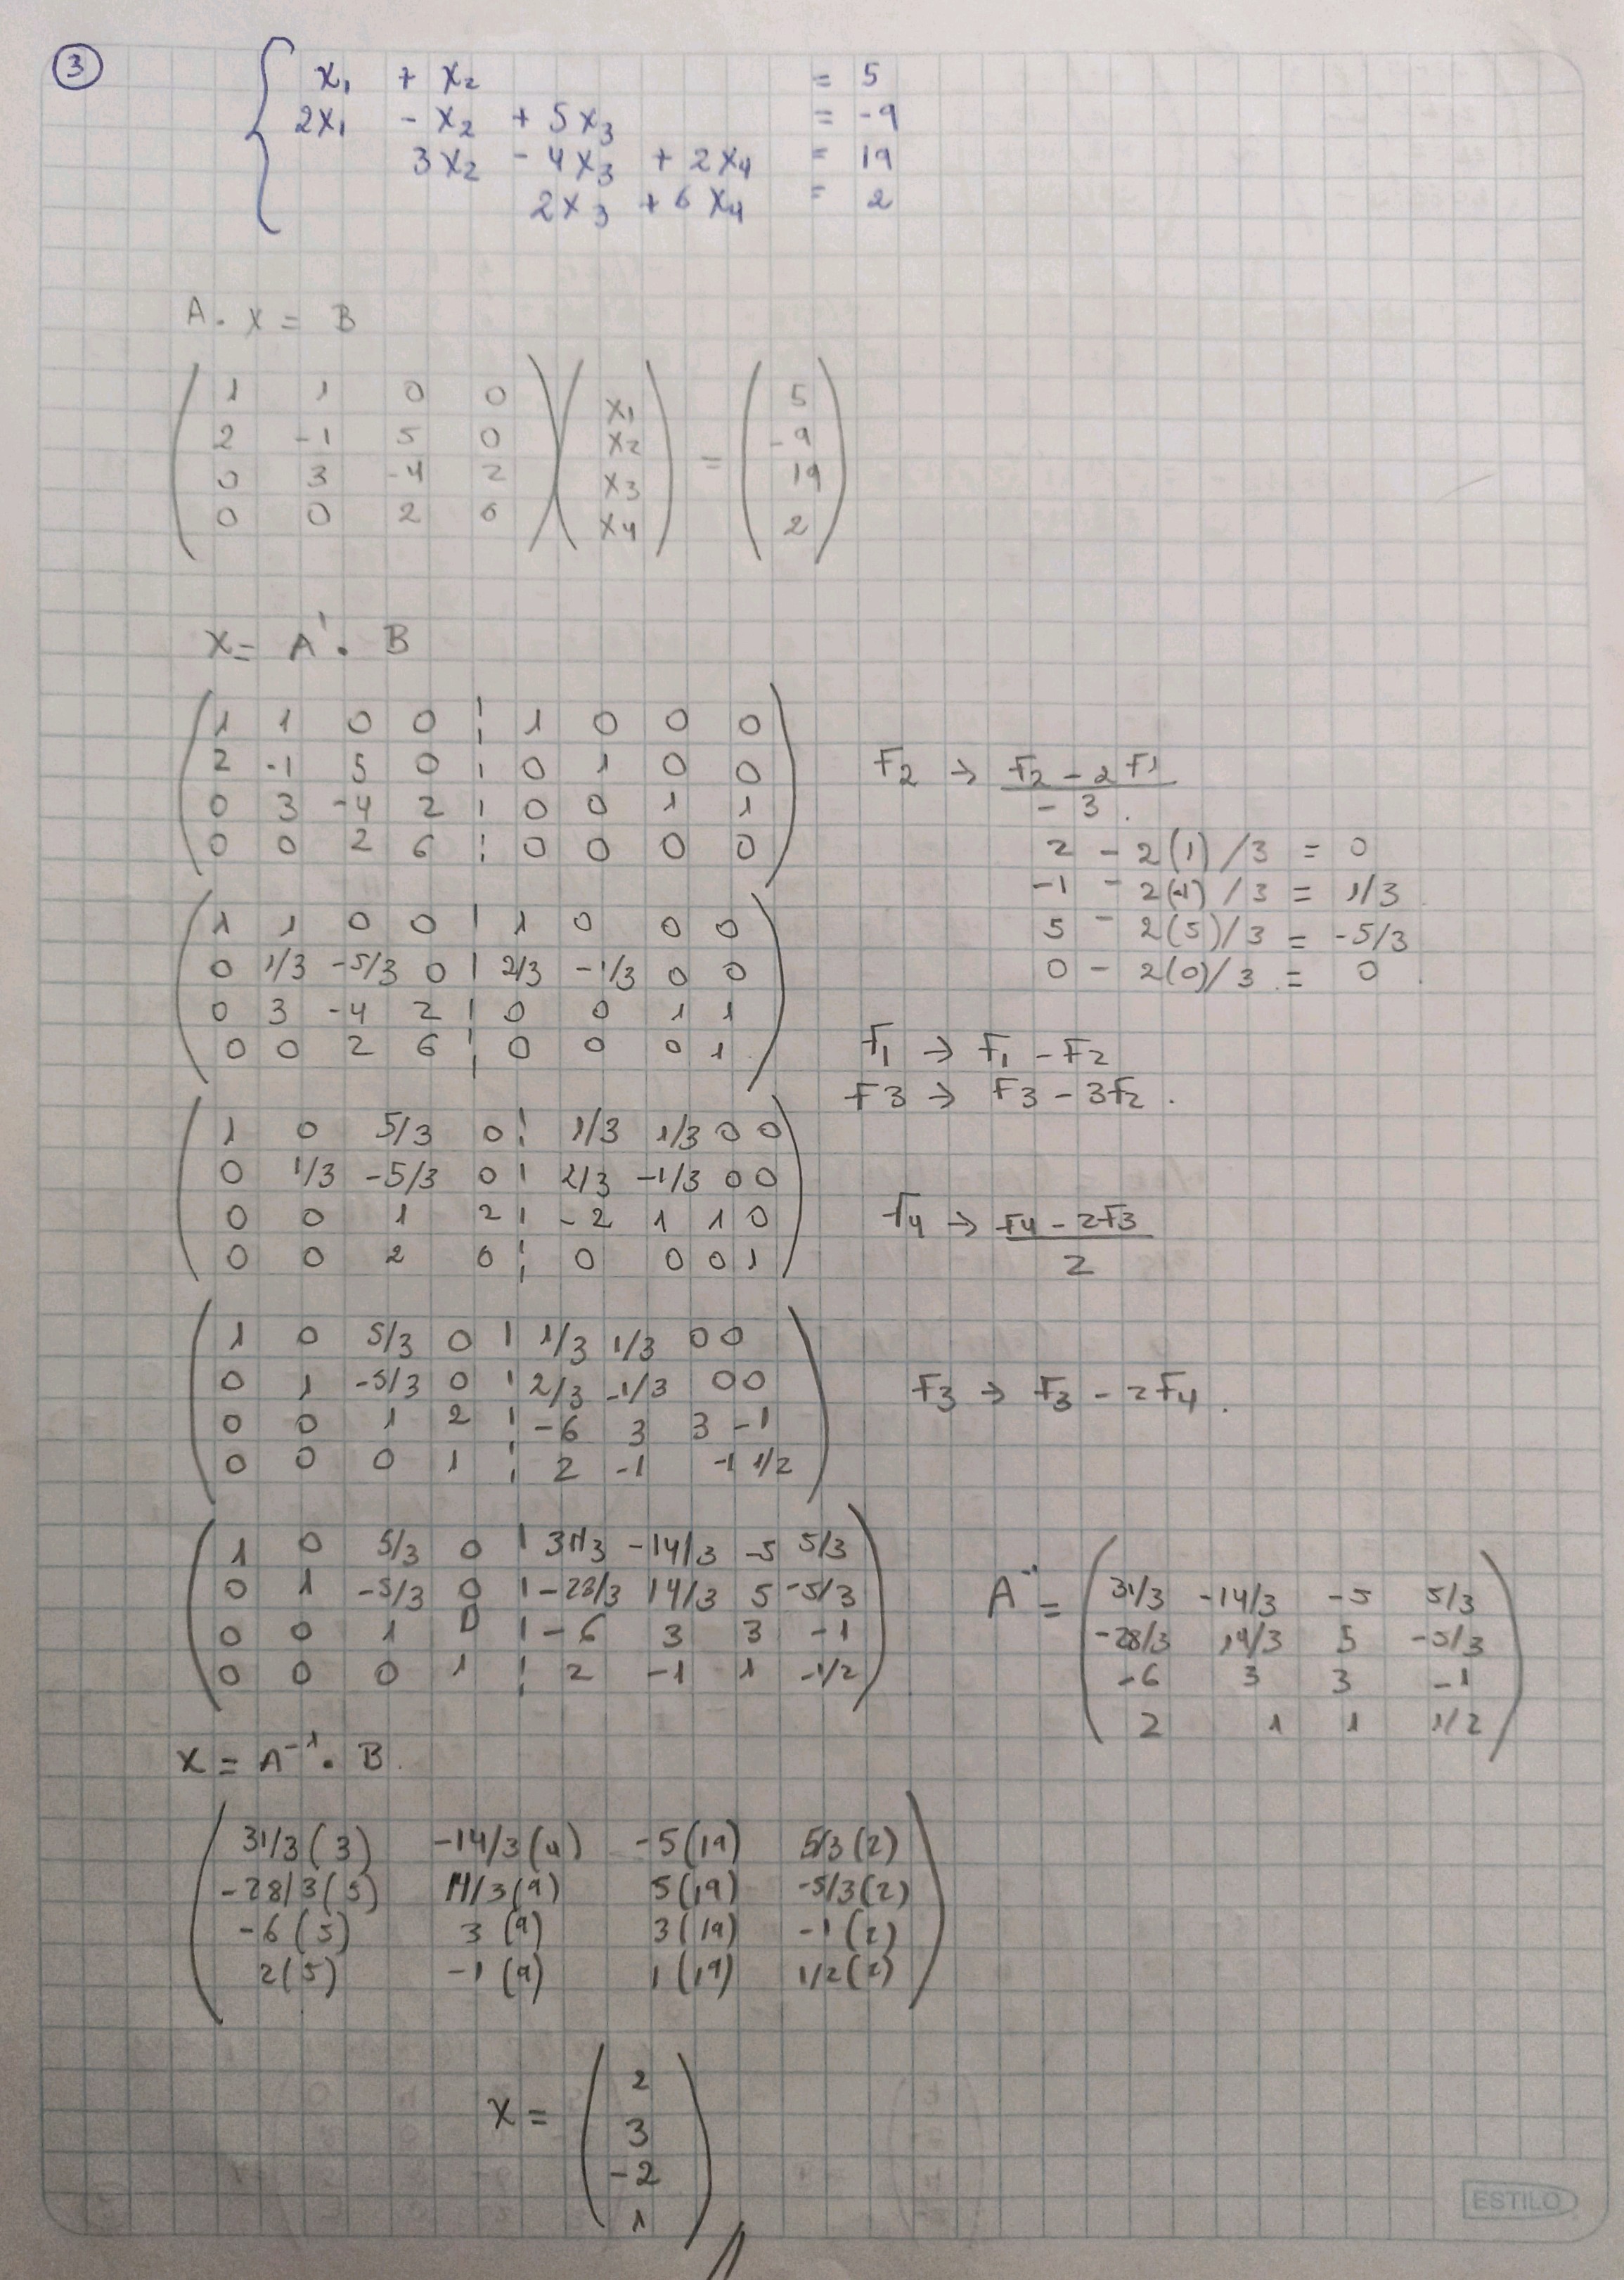 ③
x₁ + x₂ = 5
2x₁ - x₂ + 5x₃ = -9
3x₂ - 4x₃ + 2x₄ = 19
2x₃ + 6x₄ = 2
A . x = B
1 1 0 0 x₁ 5
2 -1 5 0 x₂ = -9
0 3 -4 2 x₃ 19
0 0 2 6 x₄ 2
x = A' . B
1 1 0 0 ¦ 1 0 0 0
2 -1 5 0 ¦ 0 1 0 0 F2 → F2 - 2F1 / -3.
0 3 -4 2 ¦ 0 0 1 1
0 0 2 6 ¦ 0 0 0 0
2 - 2(1)/3 = 0
-1 - 2(-1)/3 = 1/3
5 - 2(5)/3 = -5/3
0 - 2(0)/3 = 0
1 1 0 0 ¦ 1 0 0 0
0 1/3 -5/3 0 ¦ 2/3 -1/3 0 0
0 3 -4 2 ¦ 0 0 1 1
0 0 2 6 ¦ 0 0 0 1
F1 → F1 - F2
F3 → F3 - 3F2.
1 0 5/3 0 ¦ 1/3 1/3 0 0
0 1/3 -5/3 0 ¦ 2/3 -1/3 0 0
0 0 1 2 ¦ -2 1 1 0
0 0 2 6 ¦ 0 0 0 1
F4 → F4 - 2F3 / 2
1 0 5/3 0 ¦ 1/3 1/3 0 0
0 1 -5/3 0 ¦ 2/3 -1/3 0 0
0 0 1 2 ¦ -6 3 3 -1
0 0 0 1 ¦ 2 -1 -1 1/2
F3 → F3 - 2F4.
1 0 5/3 0 ¦ 31/3 -14/3 -5 5/3
0 1 -5/3 0 ¦ -28/3 14/3 5 -5/3
0 0 1 0 ¦ -6 3 3 -1
0 0 0 1 ¦ 2 -1 1 -1/2
A⁻¹ =
31/3 -14/3 -5 5/3
-28/3 14/3 5 -5/3
-6 3 3 -1
2 1 1 1/2
x = A⁻¹ . B.
31/3(3) -14/3(9) -5(19) 5/3(2)
-28/3(5) 14/3(9) 5(19) -5/3(2)
-6(5) 3(9) 3(19) -1(2)
2(5) -1(9) 1(19) 1/2(2)
x =
2
3
-2
1
ESTILO